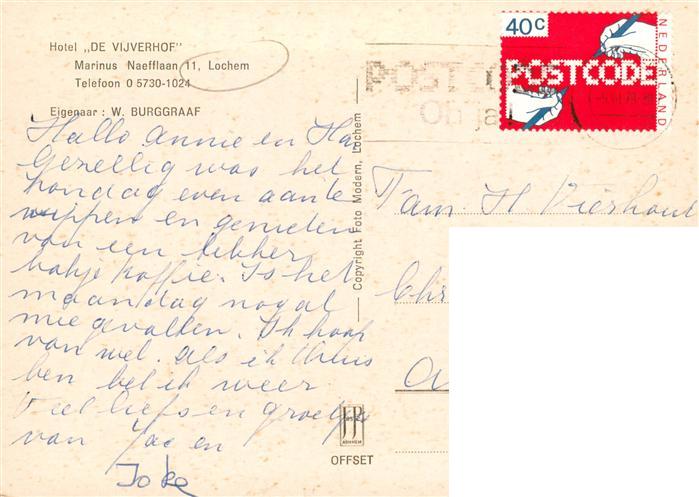 Hotel „DE VIJVERHOF"
Marinus Naefflaan 11, Lochem
Telefoon 0 5730-1024
Eigenaar : W. BURGGRAAF
Hallo Annie en Ha
Gezellig was het
zondag even aan te
wippen en genieten
van een lekker
bakje koffie. Is het
maandag nogal
mee gevallen. Ik hoop
van wel. als ik thuis
ben bel ik weer
Veel liefs en groetjes
van Jac en
Joke
Copyright Foto Modern, Lochem
JP
ARNHEM
OFFSET
40c
POSTCODE
NEDERLAND
POSTCODE
Fam. H
Chr